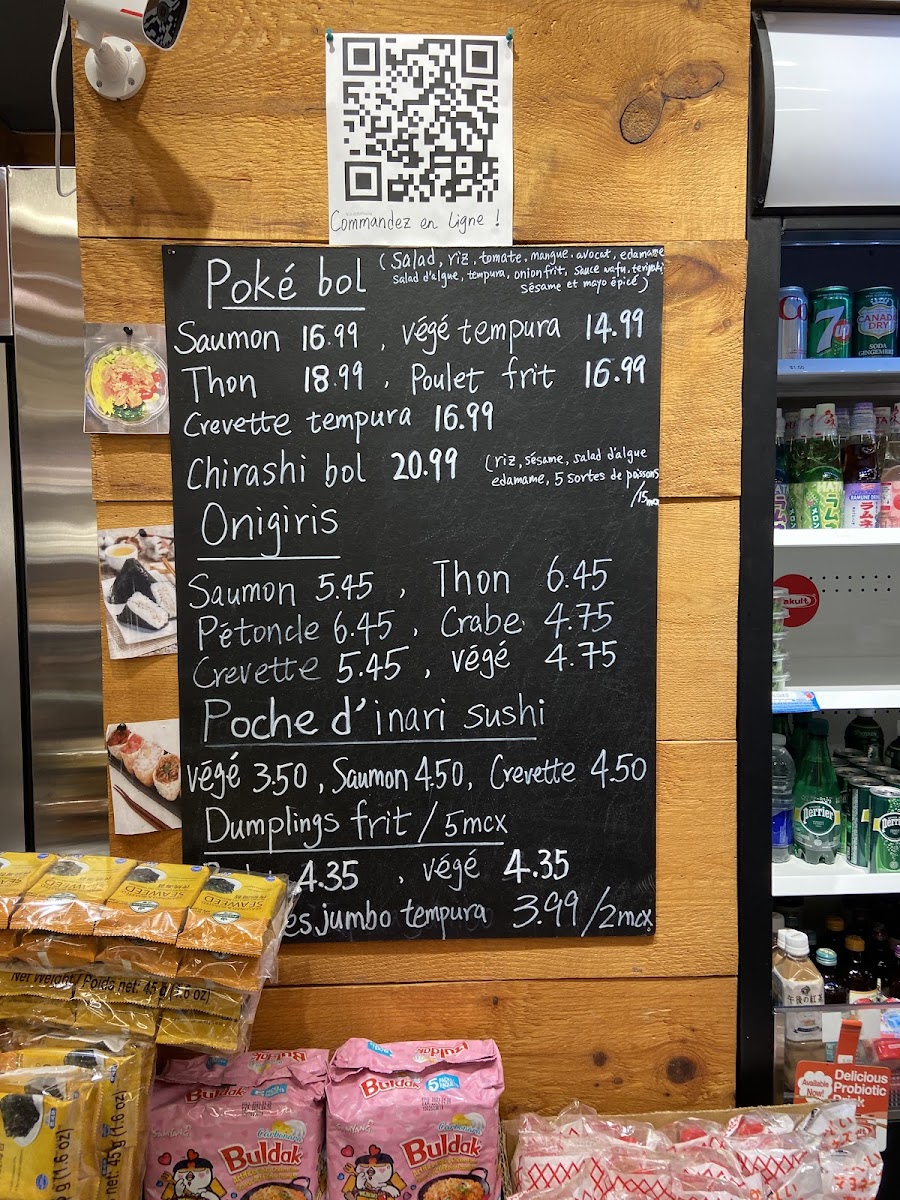 Commandez en Ligne !
Poké bol (Salad, riz, tomate, mangue, avocat, edamame
salad d'algue, tempura, onion frit, sauce wafu, teriyaki
sésame et mayo épicé)
Saumon 16.99, végé tempura 14.99
Thon 18.99, Poulet frit 16.99
Crevette tempura 16.99
Chirashi bol 20.99 (riz, sésame, salad d'algue
edamame, 5 sortes de poissons
/15mcx
Onigiris
Saumon 5.45, Thon 6.45
Pétoncle 6.45, Crabe 4.75
Crevette 5.45, végé 4.75
Poche d'inari sushi
végé 3.50, Saumon 4.50, Crevette 4.50
Dumplings frit / 5mcx
4.35, végé 4.35
es jumbo tempura 3.99/2mcx
7up
CANADA
DRY
SODA
GINGEMBRE
ラムネ
RAMUNE
ラムネ
akult
Perrier
Perrier
午後の紅茶
Available
Now!
Delicious
Probiotic
Drink
SEAWEED
SEAWEED
SEAWEED
Net Weight / Poids net: 45 g (1.6 oz)
45 g (1.6 oz)
Buldak
Carbonara
Buldak
Buldak
5
Buldak